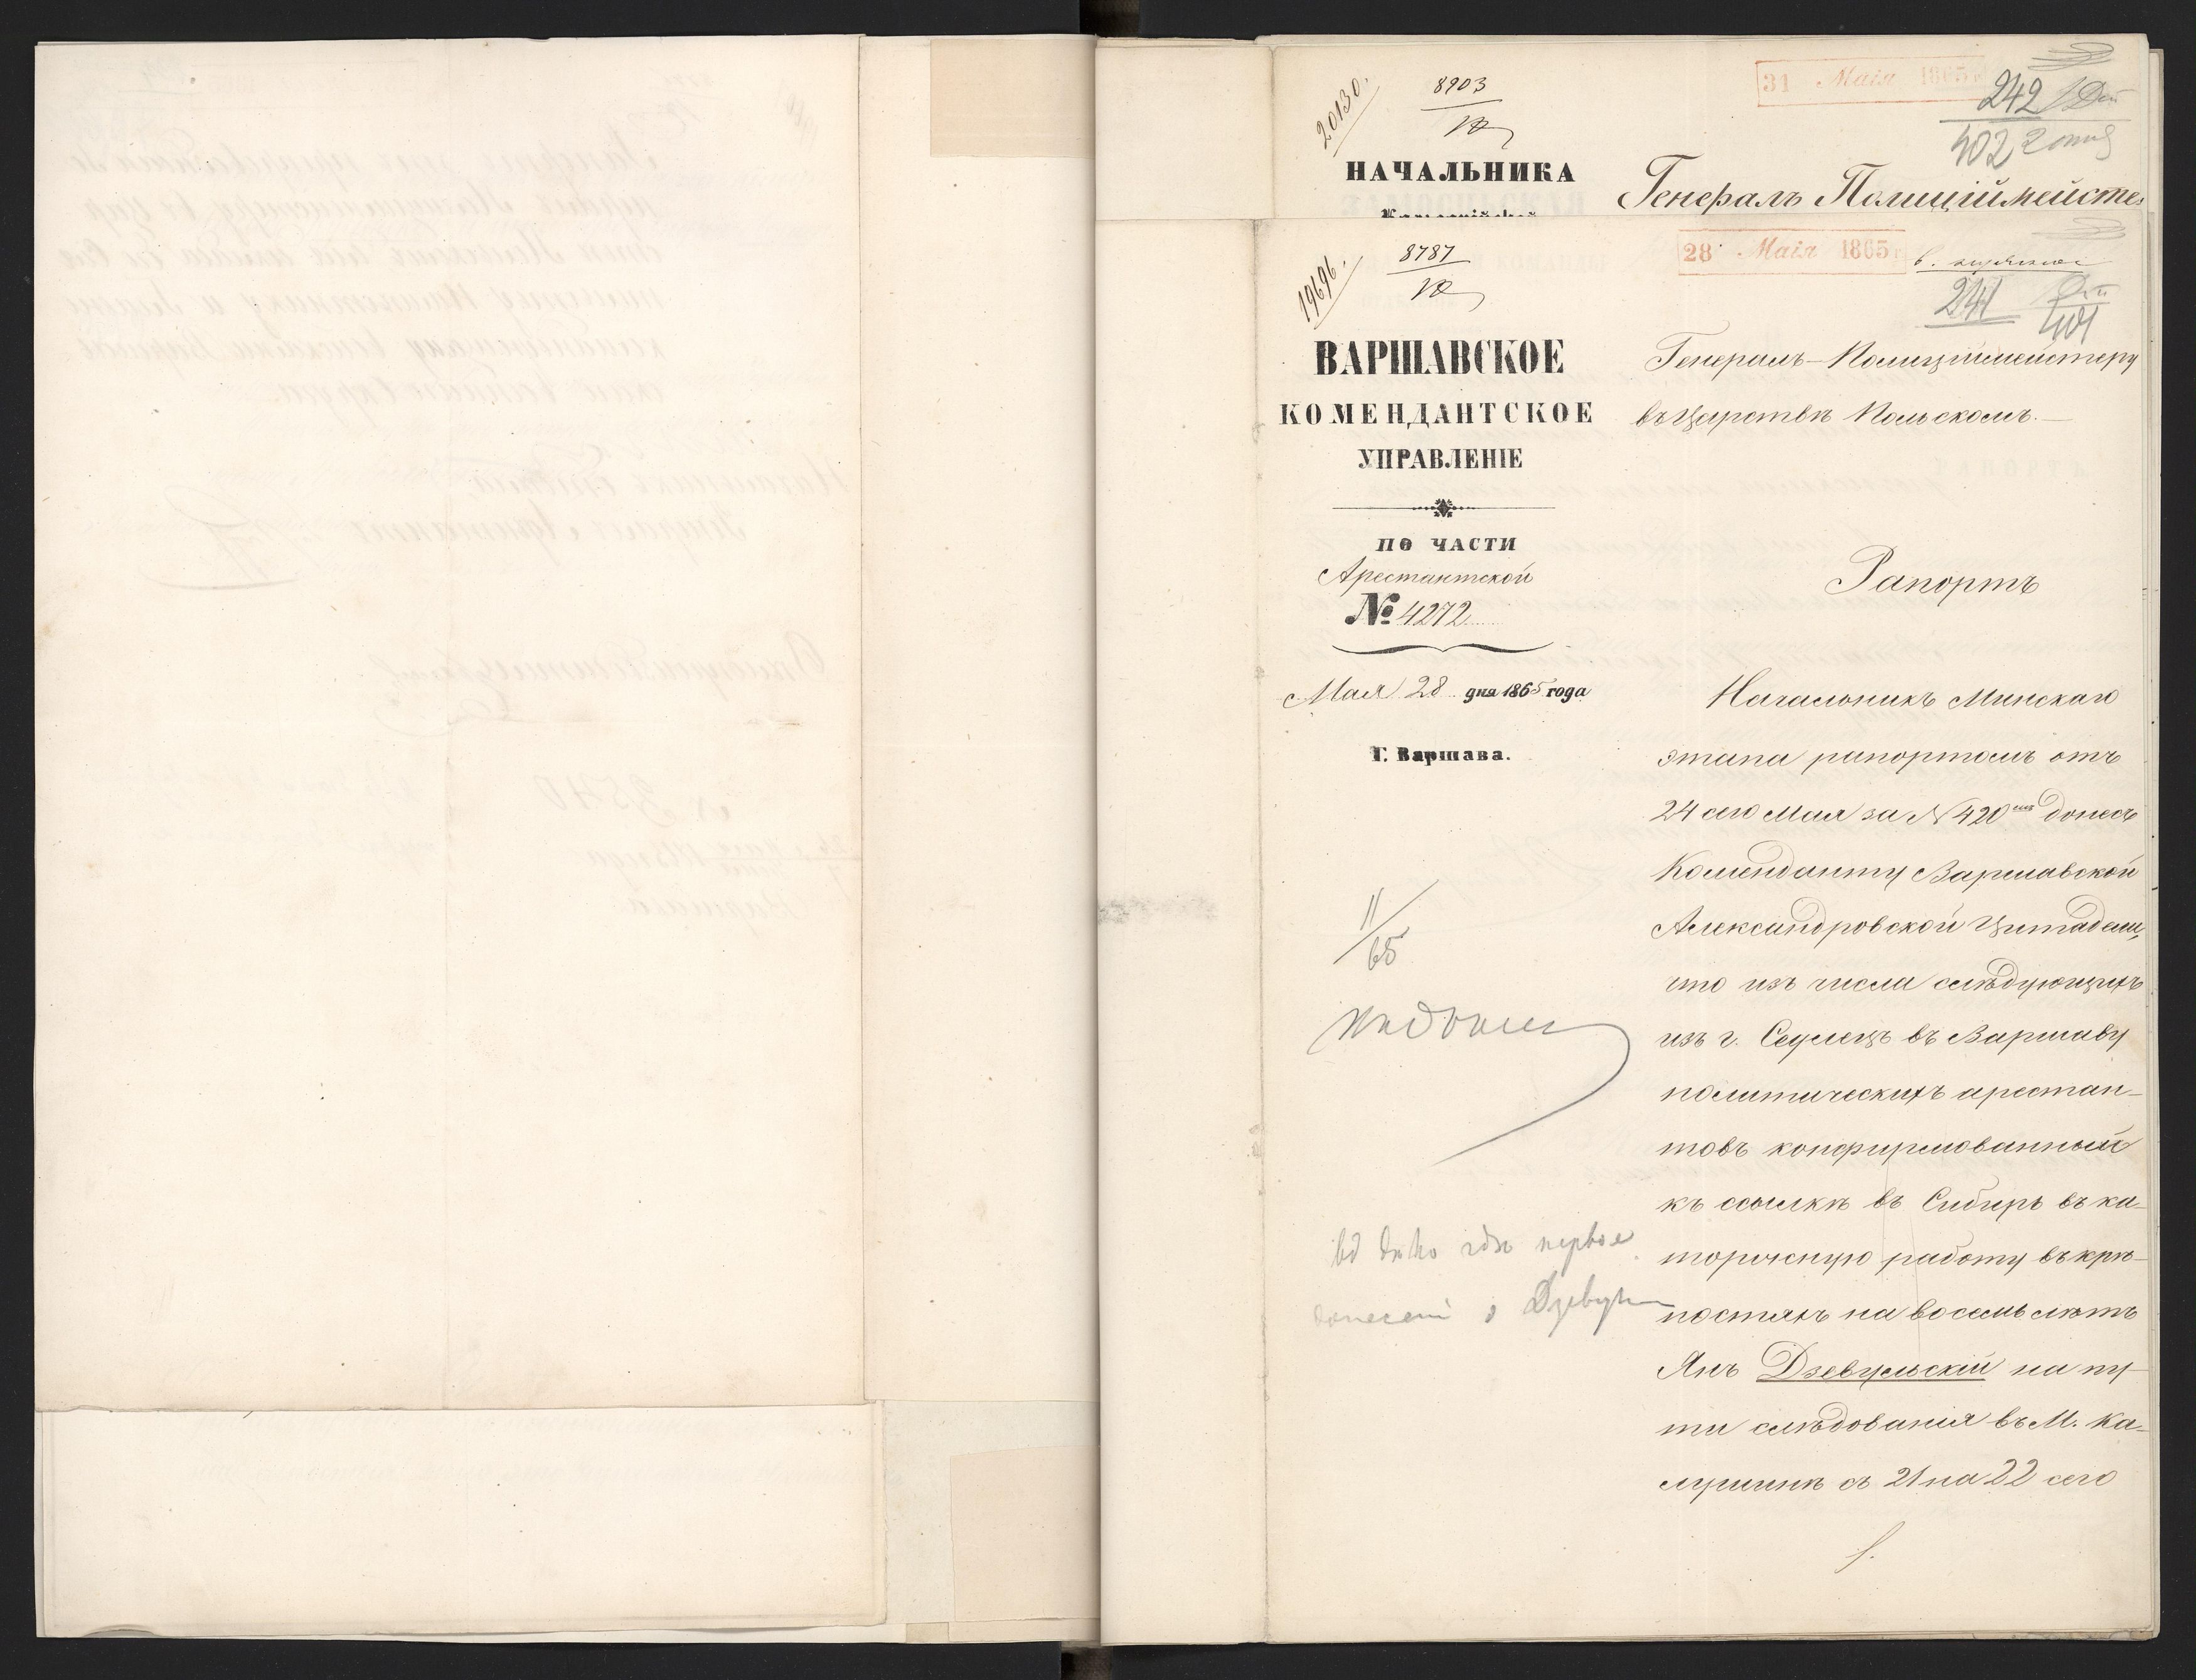 20130.
8903
31 Мая 1865
242
402 2 отд
НАЧАЛЬНИКА
Генералъ Полиціймейсте
19696.
8787
28 Мая 1865
241
401
ВАРШАВСКОЕ
КОМЕНДАНТСКОЕ
УПРАВЛЕНІЕ
ПО ЧАСТИ
Арестантской
№ 4272
Мая 28 дня 1865 года
Г. Варшава.
11/65
Генералъ-Полиціймейстеру
въ Царствѣ Польскомъ.—
Рапортъ
Начальникъ Минскаго
этапа рапортомъ отъ
24 сего Мая за N 420 донесъ
Коменданту Варшавской
Александровской Цитадели,
что изъ числа слѣдующихъ
изъ г. Седлецъ въ Варшаву
политическихъ арестан-
товъ конфирмованный
къ ссылкѣ въ Сибирь въ ка-
торжную работу въ крѣ-
постяхъ на восемь лѣтъ
Янъ Дзевульскій на пу-
ти слѣдованія въ М. Ка-
лушинѣ съ 21 на 22 сего
гдѣ первое
донесеніе о